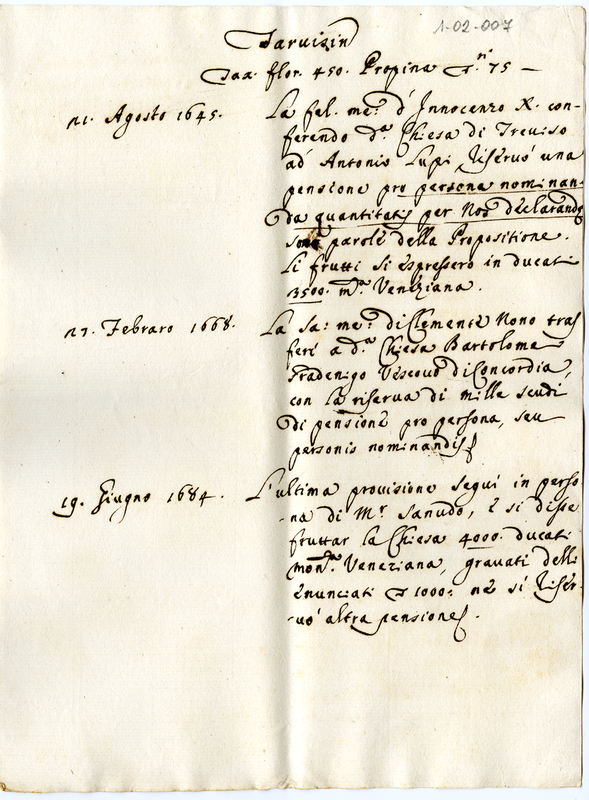 1-02-007
Tarvisin
Taxa flor. 450. Propina 75 —
21. Agosto 1645. La fel. me: d'Innocenzo X. con-
ferendo d.a Chiesa di Treviso
ad Antonio Lupi riservò una
pensione pro persona nominan-
da quantitatis per Nos declarandę
sono parole della Propositione.
Li frutti si espressero in ducati
3500. m.a Veneziana.
27. Febraro 1668. La sa: me: di Clemente Nono tras
ferì a d.a Chiesa Bartolomeo
Gradenigo Vescovo di Concordia,
con la riserva di mille scudi
di pensione pro persona, seu
personis nominandis
19. Giugno 1684. L'ultima provisione seguì in perso
-na di M.r Sanudo, e si disse
fruttar la Chiesa 4000. ducati
mon.a Veneziana, gravati delli
enunciati 1000: nè si riser-
-vò altra pensione.